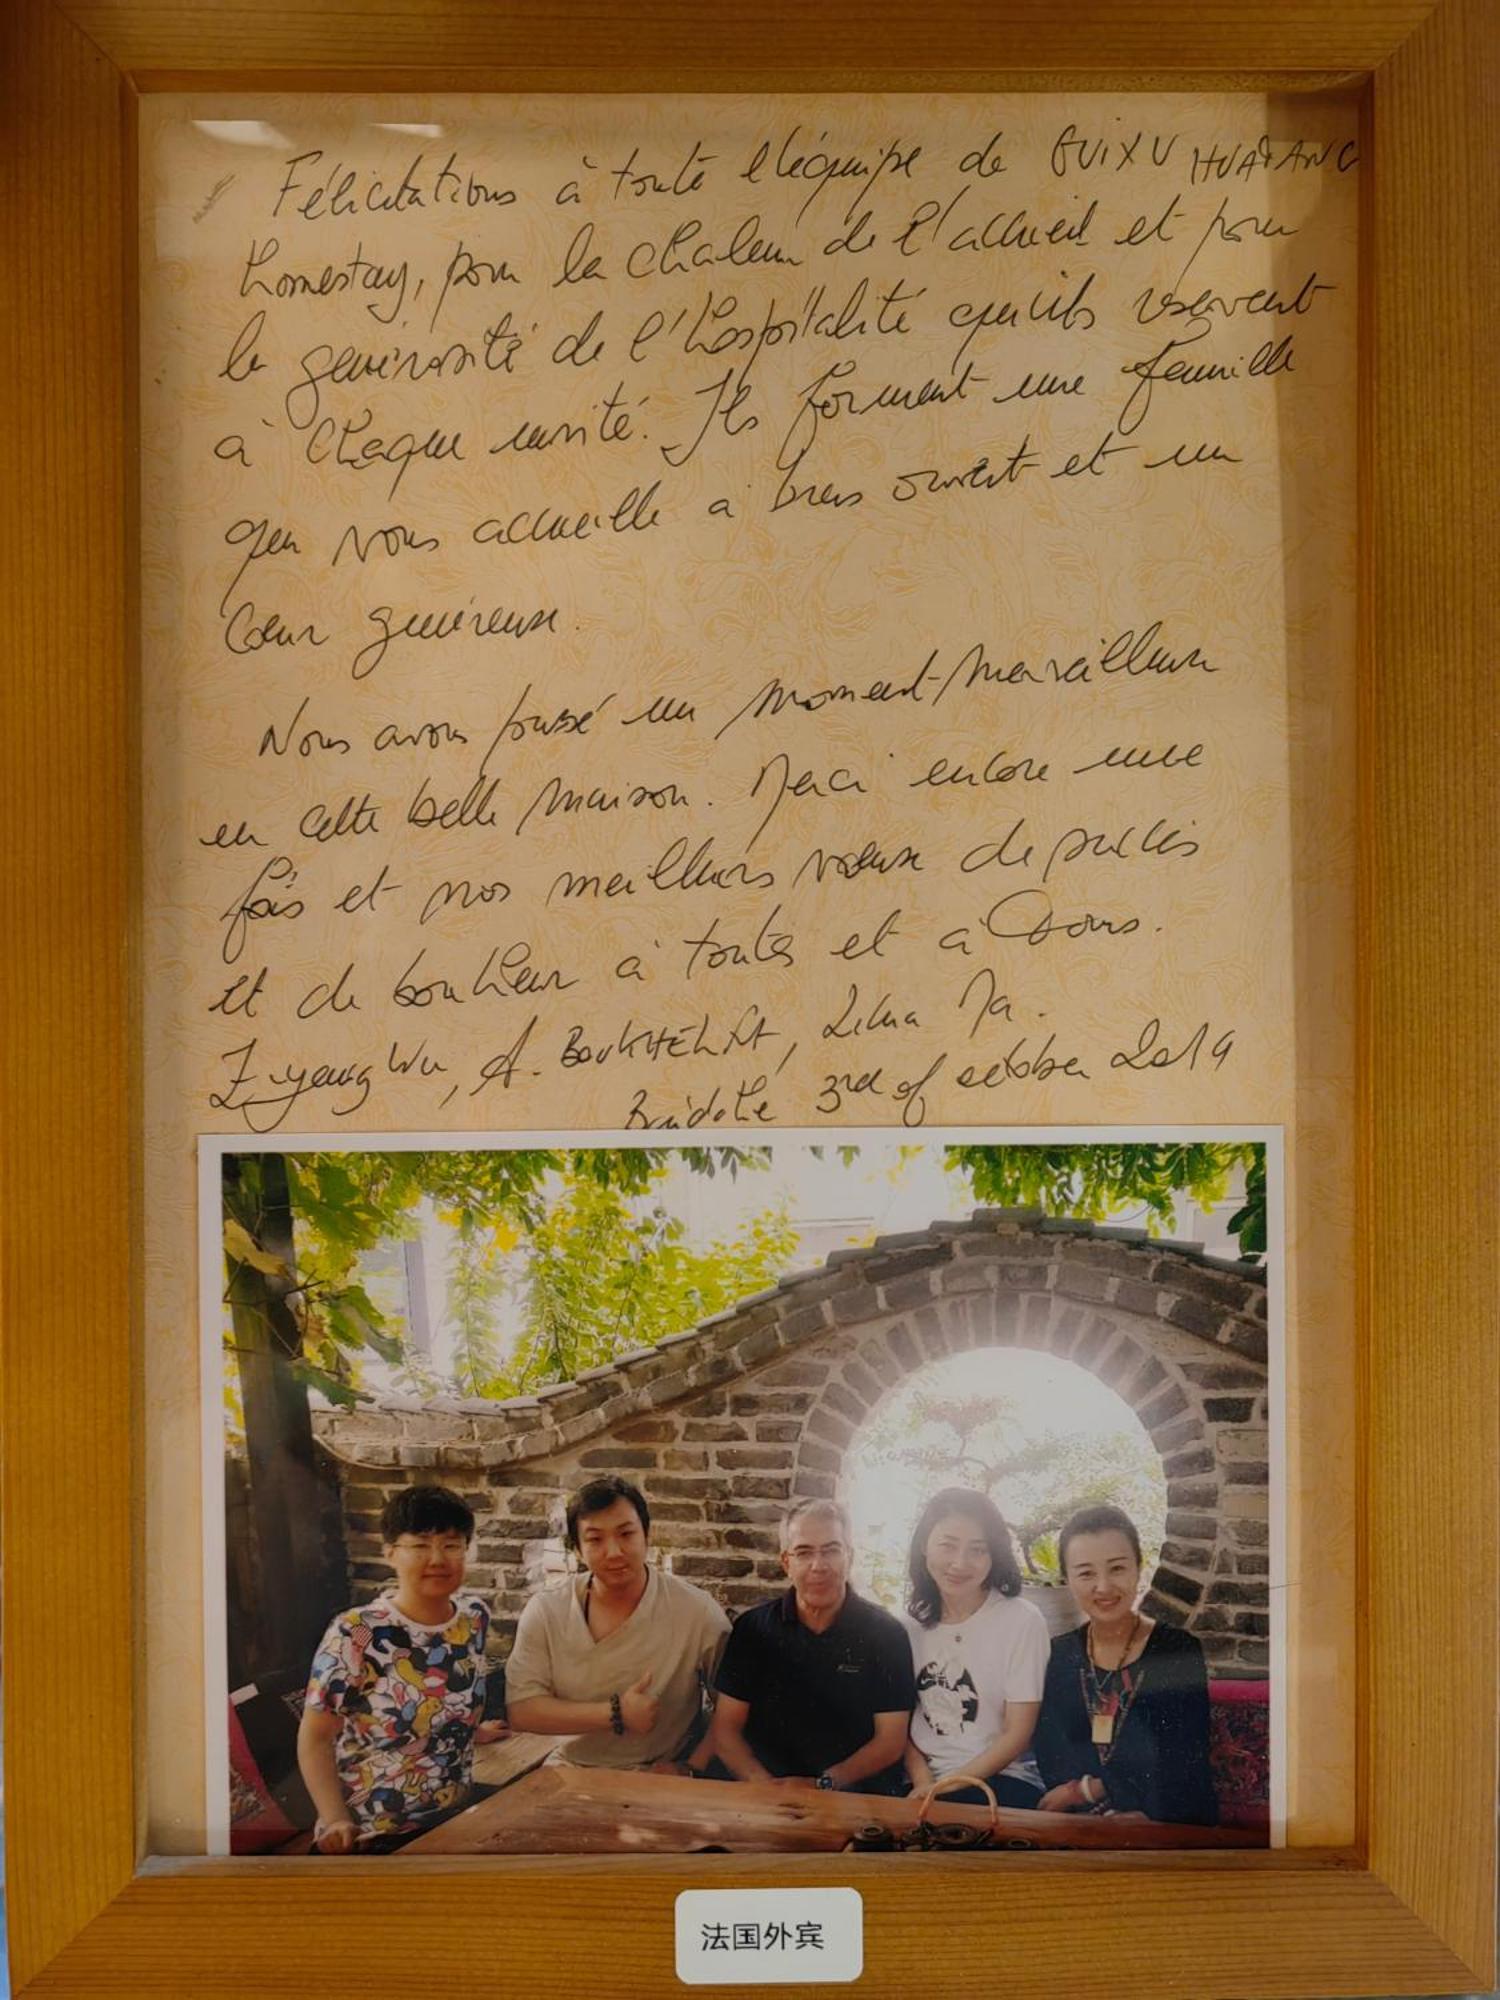 Félicitations à toute l'équipe de GUIXU HUATANG
homestay, pour la chaleur de l'accueil et pour
la générosité de l'hospitalité qu'ils réservent
à chaque invité. Ils forment une famille
qui vous accueille à bras ouvert et un
cœur généreux.
Nous avons passé un moment merveilleux
en cette belle maison. Merci encore une
fois et nos meilleurs vœux de succès
et de bonheur à toutes et à tous.
Ziyang Wu, A. BOUKHELIFA, Lihua Ma.
3rd of october 2019
法国外宾